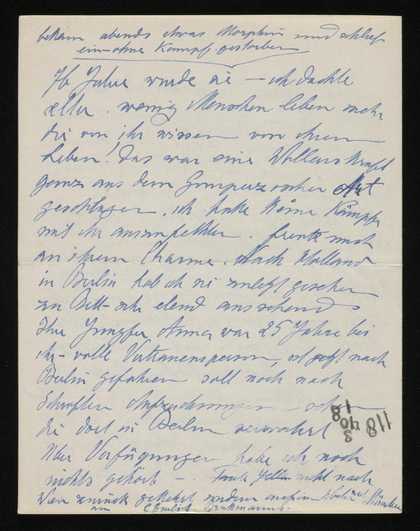 bekam abends etwas Morphium und schlief
ein - ohne Kampf gestorben
76 Jahre wurde sie - ich dachte
älter. wenig Menschen leben mehr
die von ihr wissen von ihrem
Leben! Das war eine Willenskraft
ganz aus dem Gomperz Art
geschlagen, ich hatte Kämpfe
mit ihr auszufechten. freute mich
an ihrem Charme. Nach Holland
in Berlin hab ich sie zuletzt gesehen
zu Bett sehr elend aussehend
Ihre Jungfer Anna war 25 Jahre bei
ihr - volle Vertrauensperson, ist jetzt nach
Berlin gefahren soll noch nach
Schriften
die dort in Berlin verwahrt
Über Verfügungen habe ich noch
nichts gehört - nicht nach
Wien zurück gekehrt sondern
118
3
40
18